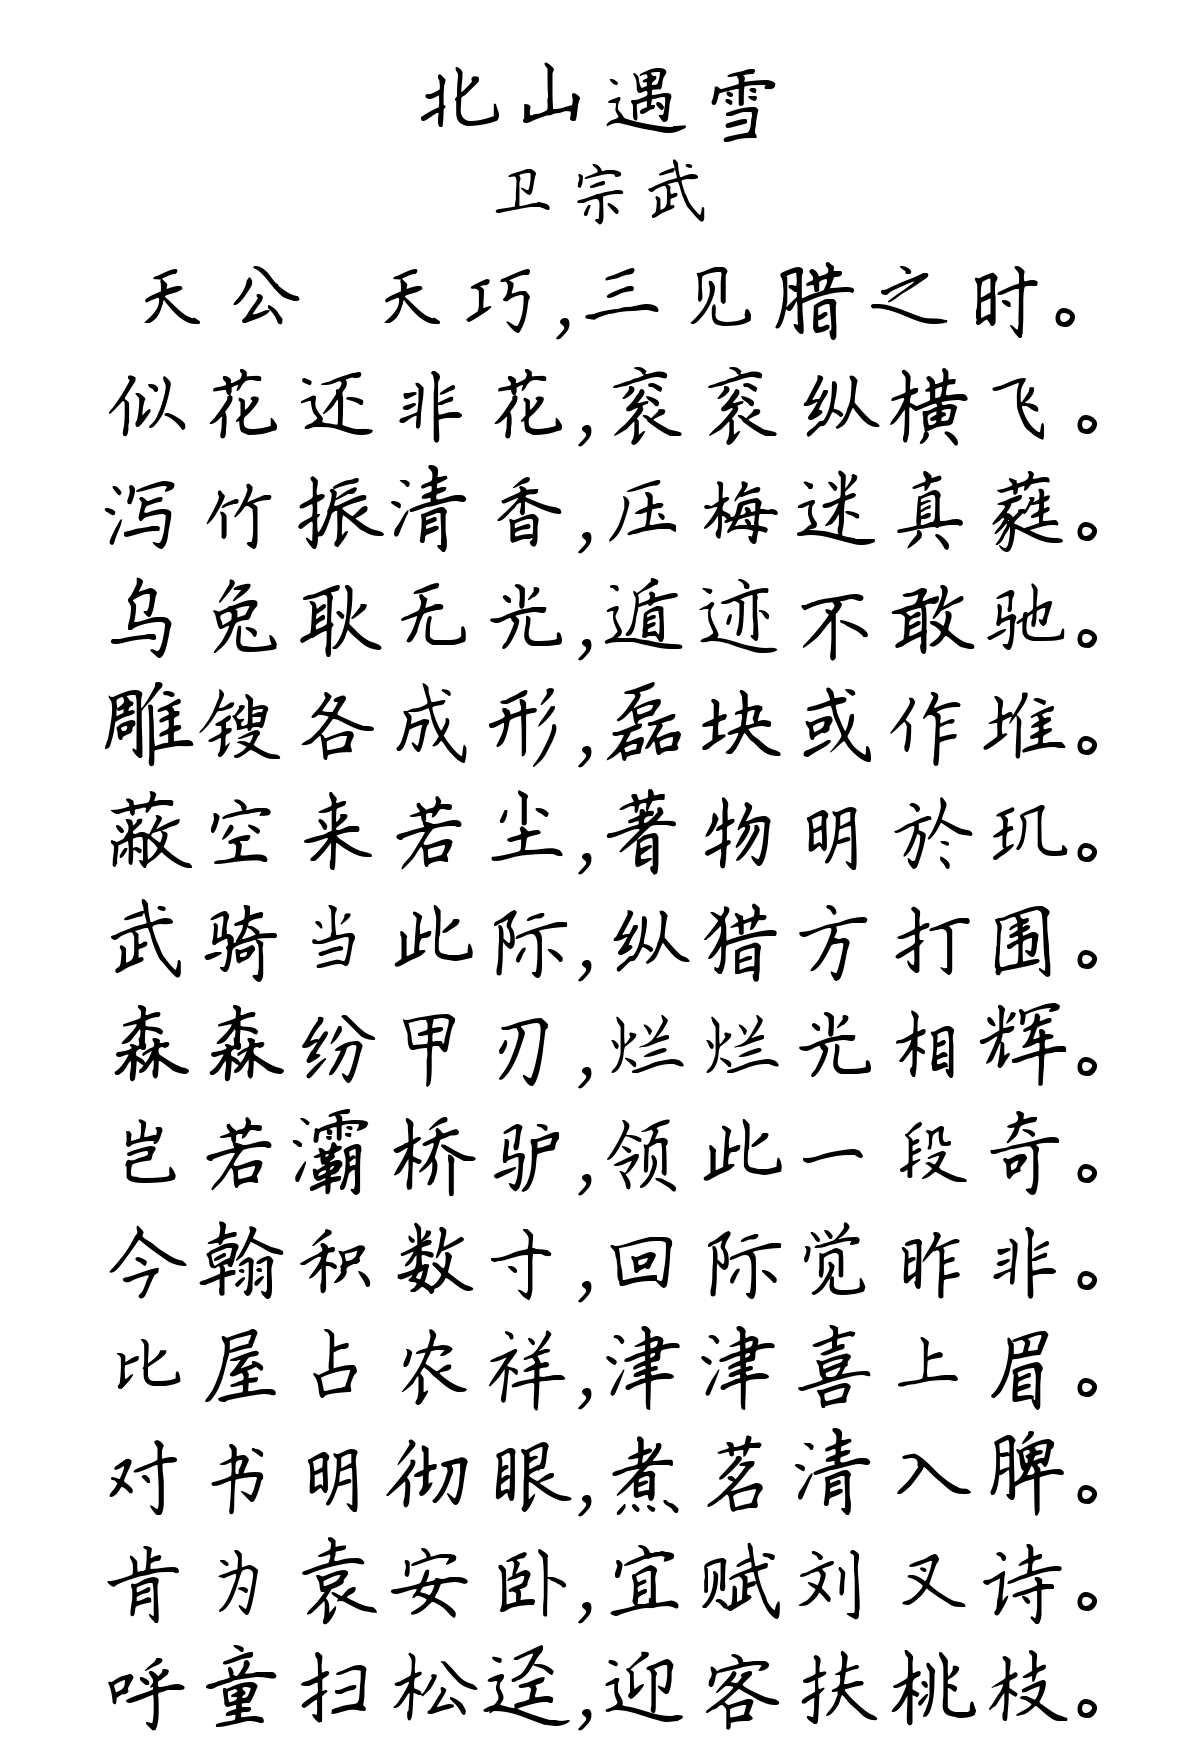 北山遇雪
卫宗武
天公 天巧,三见腊之时。
似花还非花,衮衮纵横飞。
泻竹振清香,压梅迷真蕤。
乌兔耿无光,遁迹不敢驰。
雕锼各成形,磊块或作堆。
蔽空来若尘,著物明於玑。
武骑当此际,纵猎方打围。
森森纷甲刃,烂烂光相辉。
岂若灞桥驴,领此一段奇。
今翰积数寸,回际觉昨非。
比屋占农祥,津津喜上眉。
对书明彻眼,煮茗清入脾。
肯为袁安卧,宜赋刘叉诗。
呼童扫松迳,迎客扶桃枝。